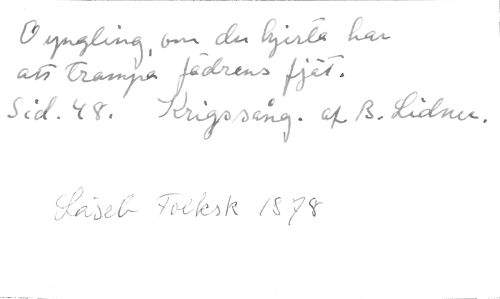 O yngling, om du hjerta har
att trampa fädrens fjät.
Sid. 48. Krigssång. af B. Lidner.
Läseb Folksk 1878